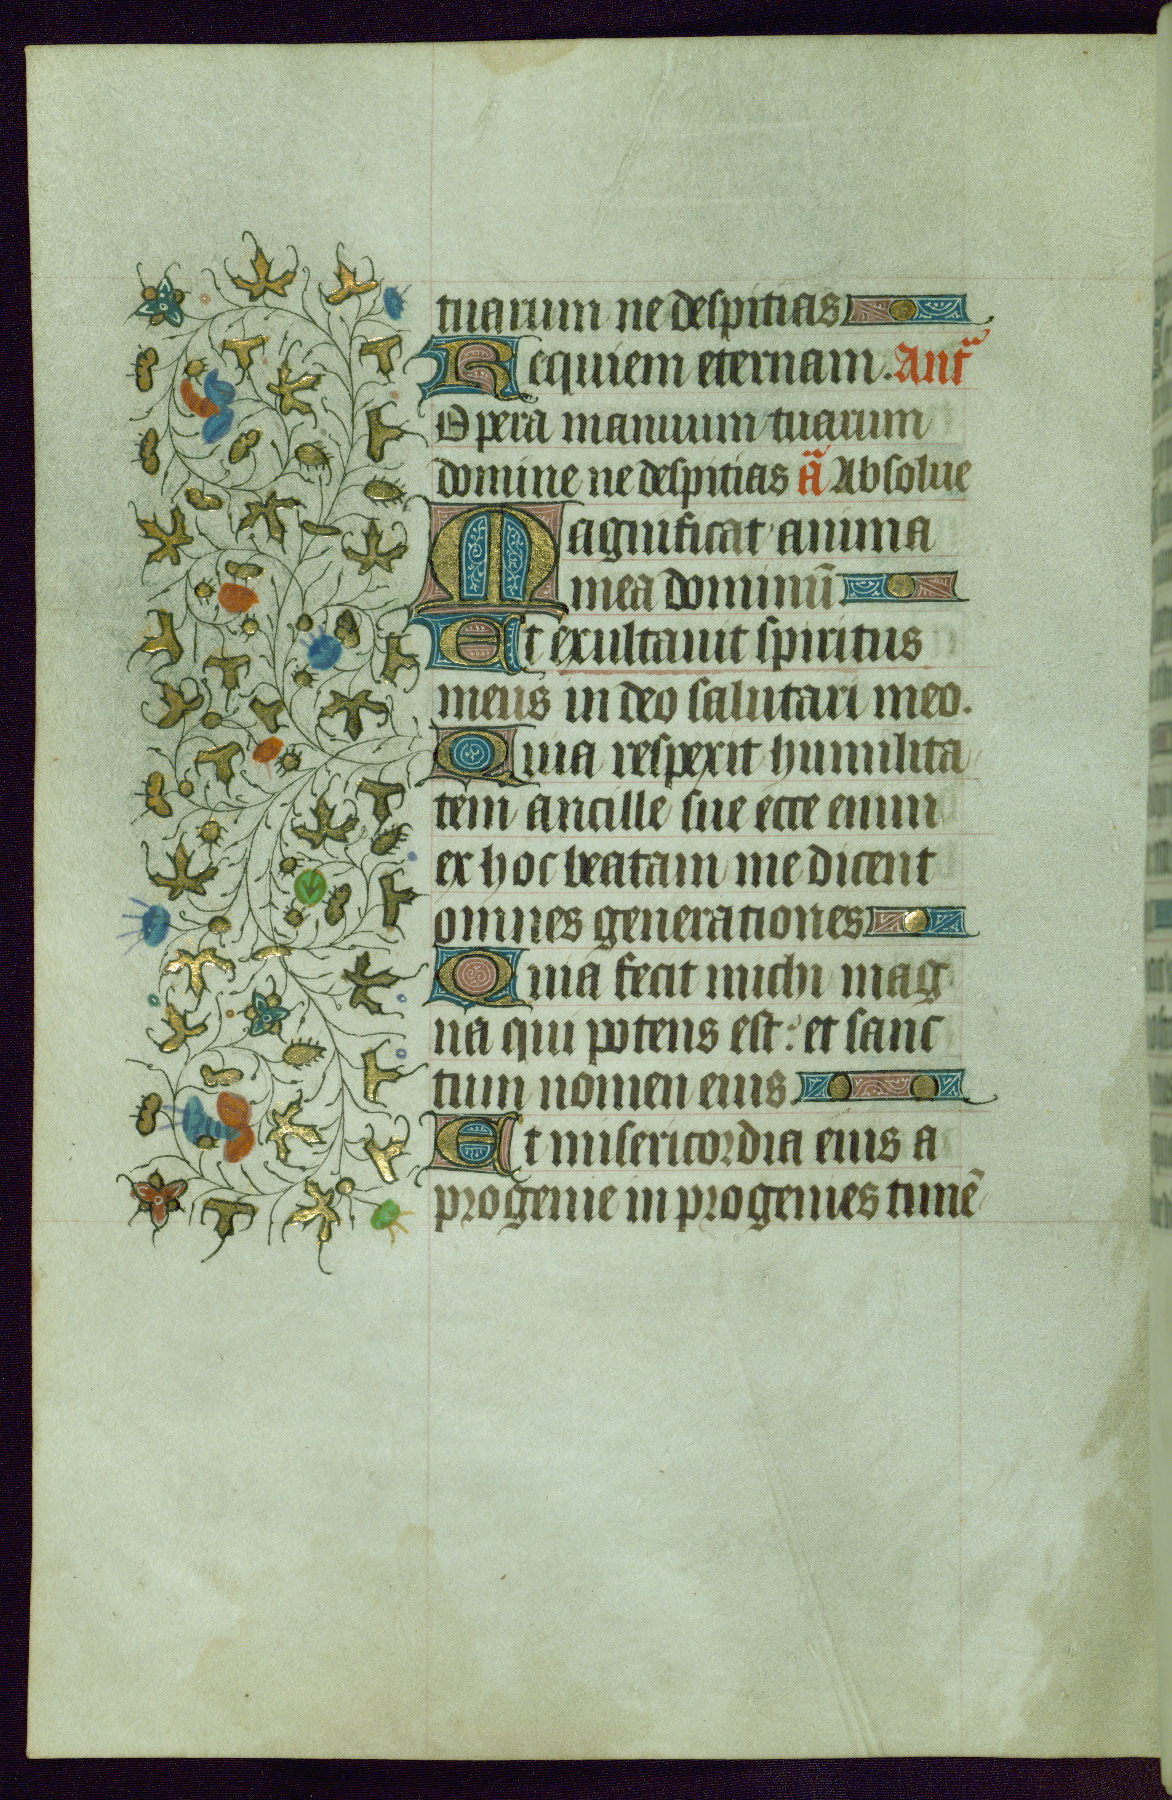 tuarum ne despitias
Requiem eternam. Ant̃
Opera manuum tuarum
domine ne despitias ã Absolue
Magnificat anima
mea dominũ
Et exultauit spiritus
meus in deo salutari meo.
Quia respexit humilita
tem ancille sue ecce enim
ex hoc beatam me dicent
omnes generationes
Quia fecit michi mag
na qui potens est: et sanc
tum nomen eius.
Et misericordia eius a
progenie in progenies timẽ